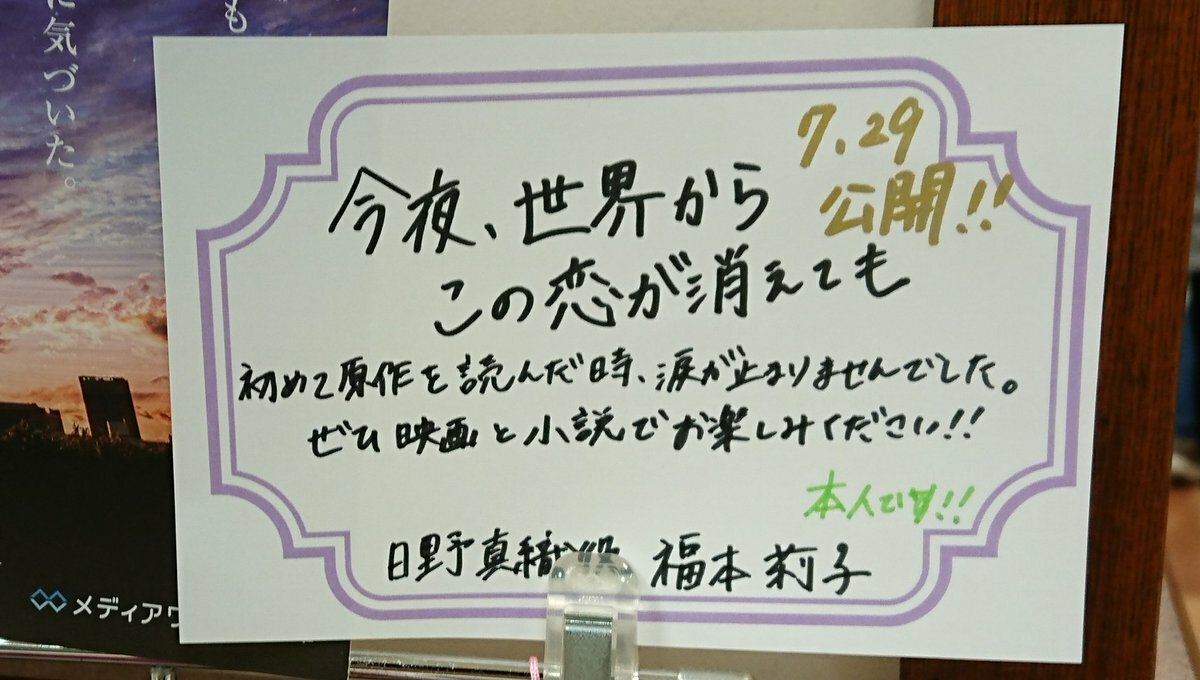 も
に気づいた。
7.29
公開!!
今夜、世界から
この恋が消えても
初めて原作を読んだ時、涙が止まりませんでした。
ぜひ映画と小説でお楽しみください!!
本人です!!
日野真織役 福本莉子
メディアワ